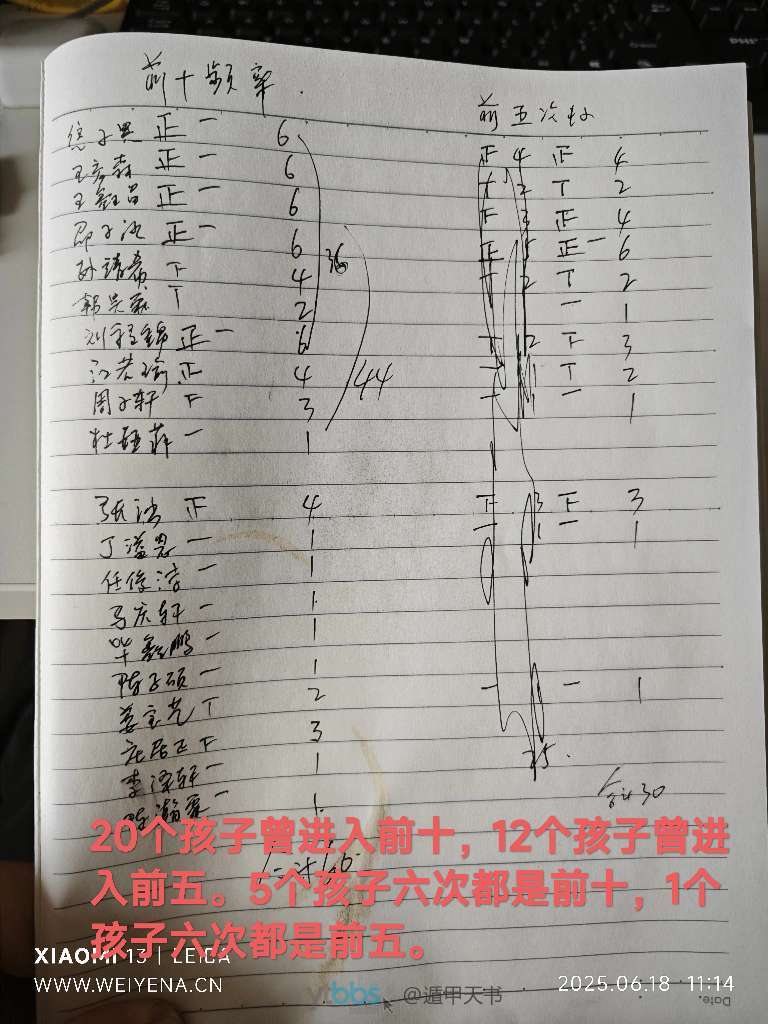 前十频率.
前五次数
徐子恩 正一 6 正 4 正 4
王彦森 正一 6 T 2 T 2
王毓昌 正一 6 F 3 正 4
邵子涵 正一 6 正 5 正一 6
孙靖希 正 4 T 2 T 2
郭昊霖 T 2 一 1
36
刘程锦 正一 6 T 2 F 3
江芷瑜 正 4 1 T 2
44
周子轩 F 3 一 一 1
杜 一 1
张浩 正 4 F 3 F 3
丁溢恩 一 1 一 1 一 1
任俊 一 1
马庆轩 一 1
毕鑫鹏 一 1
陈子硕 一 1 一 一 1
姜宝艺 T 2
庄居正 F 3
25.
李泽轩 一 1
合计30
陈瀚霖 一 1
20个孩子曾进入前十，12个孩子曾进
入前五。5个孩子六次都是前十，1个
孩子六次都是前五。
合计60
XIAOMI 13 | LEICA
WWW.WEIYENA.CN
2025.06.18 11:14
bbs @遁甲天书
Date.